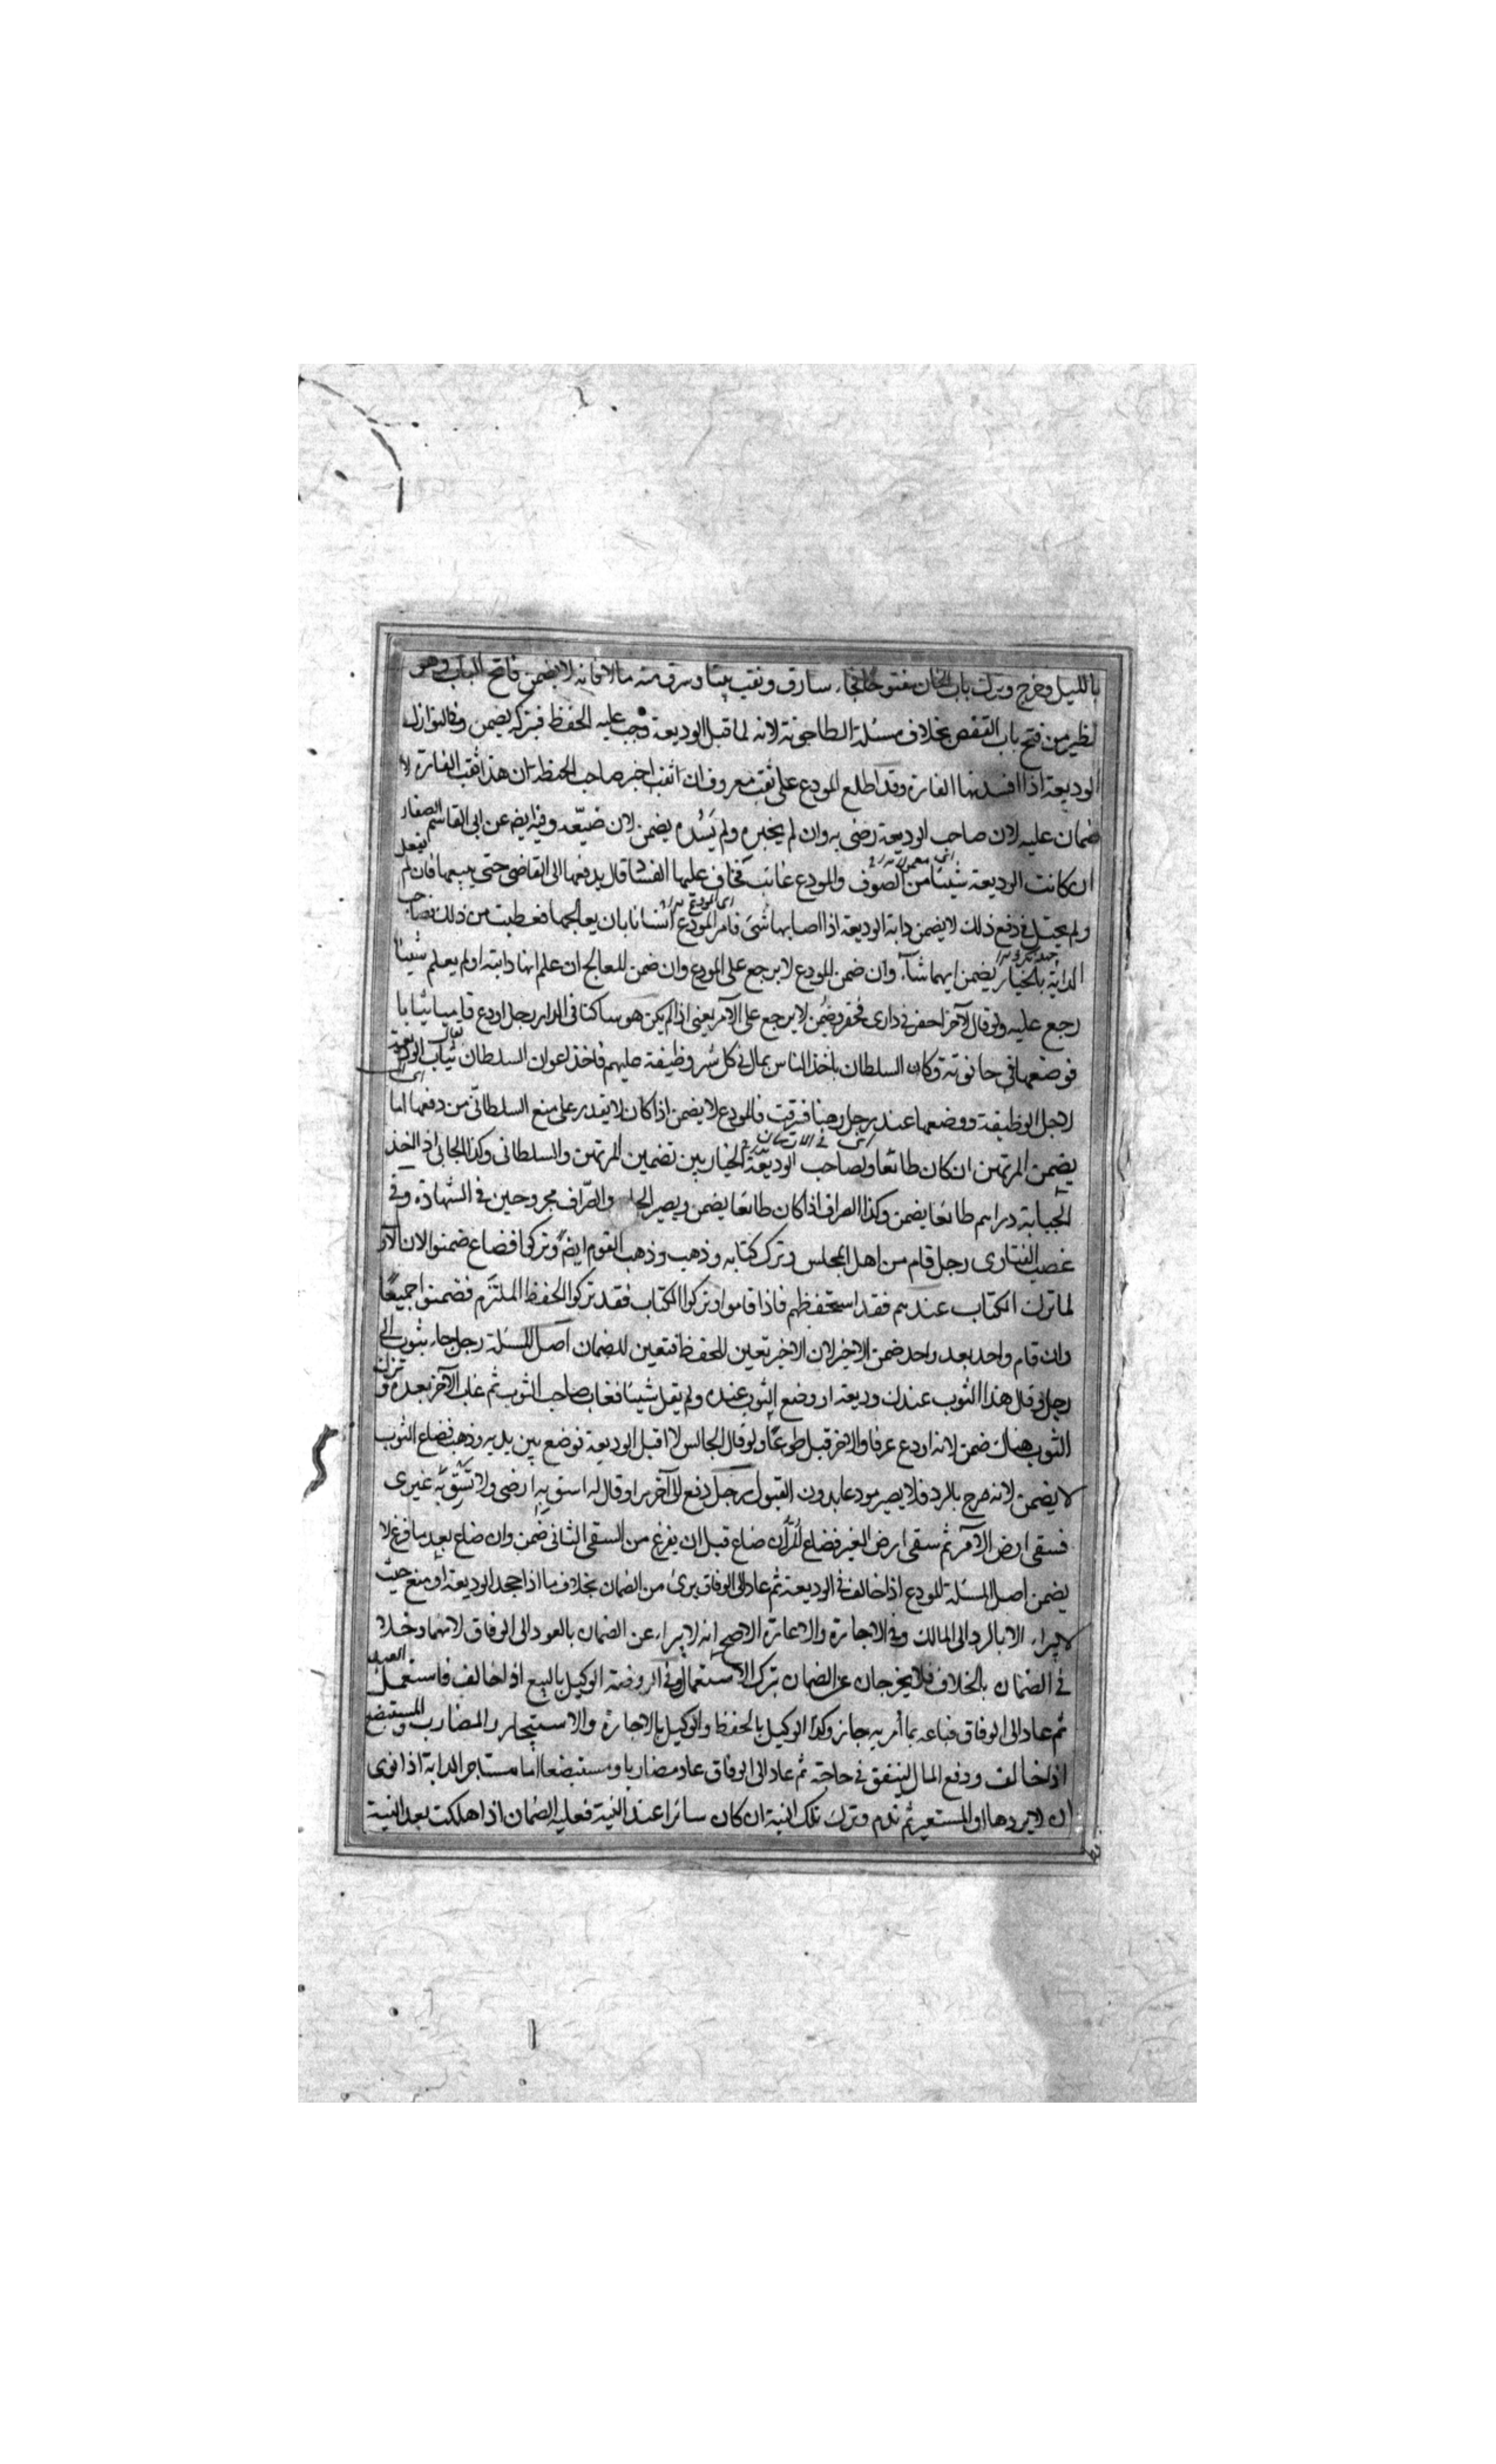 بالليل وخرج وترك باب الخان مفتوحا فجاء سارق ونقب بيتا وسرق منه مالا فانه لا يضمن فاتح الباب وهو
نظير من فتح باب القفص بخلاف مسئلة الطاحونة لانه لما قبل الوديعة وجب عليه الحفظ فبتركه يضمن وفي النوازل
الوديعة اذا افسدتها الفارة وقد اطلع المودع على ثقب معروف ان اخبر صاحب الحنطة ان هذا ثقب الفارة لا
ضمان عليه لان صاحب الوديعة رضى به وان لم يخبره ولم يسده يضمن لان ضيعه وفيه ايضا عن ابى القاسم الصفار
ان كانت الوديعة شيئا من الصوف والمودع غائب فخاف عليها الفساد قال يدفعها الى القاضى حتى يبيعها فان لم يفعل
ولم يحتل فى دفع ذلك لا يضمن دابة الوديعة اذا اصابها شئ فامر المودع انسانا بان يعالجها فعطبت من ذلك فصاحب
الدابة بالخيار يضمن ايهما شآء وان ضمن المودع لا يرجع على المودع وان ضمن المعالج ان علم انها دابته او لم يعلم شيئا
رجع عليه ولو قال لآخر احفر فى دارى فحفر وضمن لا يرجع على الآمر يعنى اذا لم يكن هو ساكنا فى الدار رجل اودع قاميا ثيابا
فوضعها فى حانوته وكان السلطان ياخذ الناس بمال فى كل شهر وظيفة عليهم فاخذ اعوان السلطان ثياب الوديعة
لاجل الوظيفة ووضعها عند رجل رهنا فسرقت فالمودع لا يضمن اذا كان لا يقدر على منع السلطانى من دفعها اما
يضمن المرتهن ان كان طائعا ولصاحب الوديعة الخيار بين تضمين المرتهن والسلطانى وكذا الجابى اذا اخذ
الجباية دراهم طائعا يضمن وكذا الصراف اذا كان طائعا يضمن ويصير والصراف مجروحين فى الشهادة وفى
غصب الفتاوى رجل قام من اهل المجلس وترك كتابه وذهب وذهب القوم ايضا وتركوا فضاع ضمنوا لان الاول
لما ترك الكتاب عندهم فقد استحفظهم فاذا قاموا وتركوا الكتاب فقد تركوا الحفظ الملتزم فضمنوا جميعا
وان قام واحد بعد واحد ضمن الاخير لان الاخير تعين للحفظ فتعين للضمان اصل المسئلة رجل جاء بثوب الى
رجل وقال هذا الثوب عندك وديعة او وضع الثوب عنده ولم يقل شيئا فغاب صاحب الثوب ثم غاب الآخر بعده وترك
الثوب هناك ضمن لانه اودع عرفا والاخر قبل طوعا ولو قال الجالس لا اقبل الوديعة فوضع بين يديه وذهب فضاع الثوب
لا يضمن لانه صرح بالرد فلا يصير مودعا بدون القبول رجل دفع الى آخر مرا وقال له اسق به ارضى ولا تسق به غيرى
فسقى ارض الآمر ثم سقى ارض الغير فضاع المر ان ضاع قبل ان يفرغ من السقى الثانى ضمن وان ضاع بعد ما فرغ لا
يضمن اصل المسئلة المودع اذا خالف فى الوديعة ثم عاد الى الوفاق برئ من الضمان بخلاف ما اذا جحد الوديعة او منع حيث
لا يبراء الا بالرد الى المالك وفى الاجارة والاعارة الاصح انه لا يبراء عن الضمان بالعود الى الوفاق لانهما دخلا
فى الضمان بالخلاف فلا يخرجان عن الضمان بترك الاستعمال وفى الروضة الوكيل بالبيع اذا خالف فاستعمل العبد
ثم عاد الى الوفاق فباعه بما امر به جاز وكذا الوكيل بالحفظ والوكيل بالاجارة والاستيجار والمضارب والمستبضع
اذا خالف ودفع المال لينفق فى حاجته ثم عاد الى الوفاق عاد مضاربا ومستبضعا اما مستاجر الدابة اذا نوى
ان لا يردها او المستعير ثم ندم وترك تلك النية ان كان سائرا عند النية فعليه الضمان اذا هلكت بعد النية